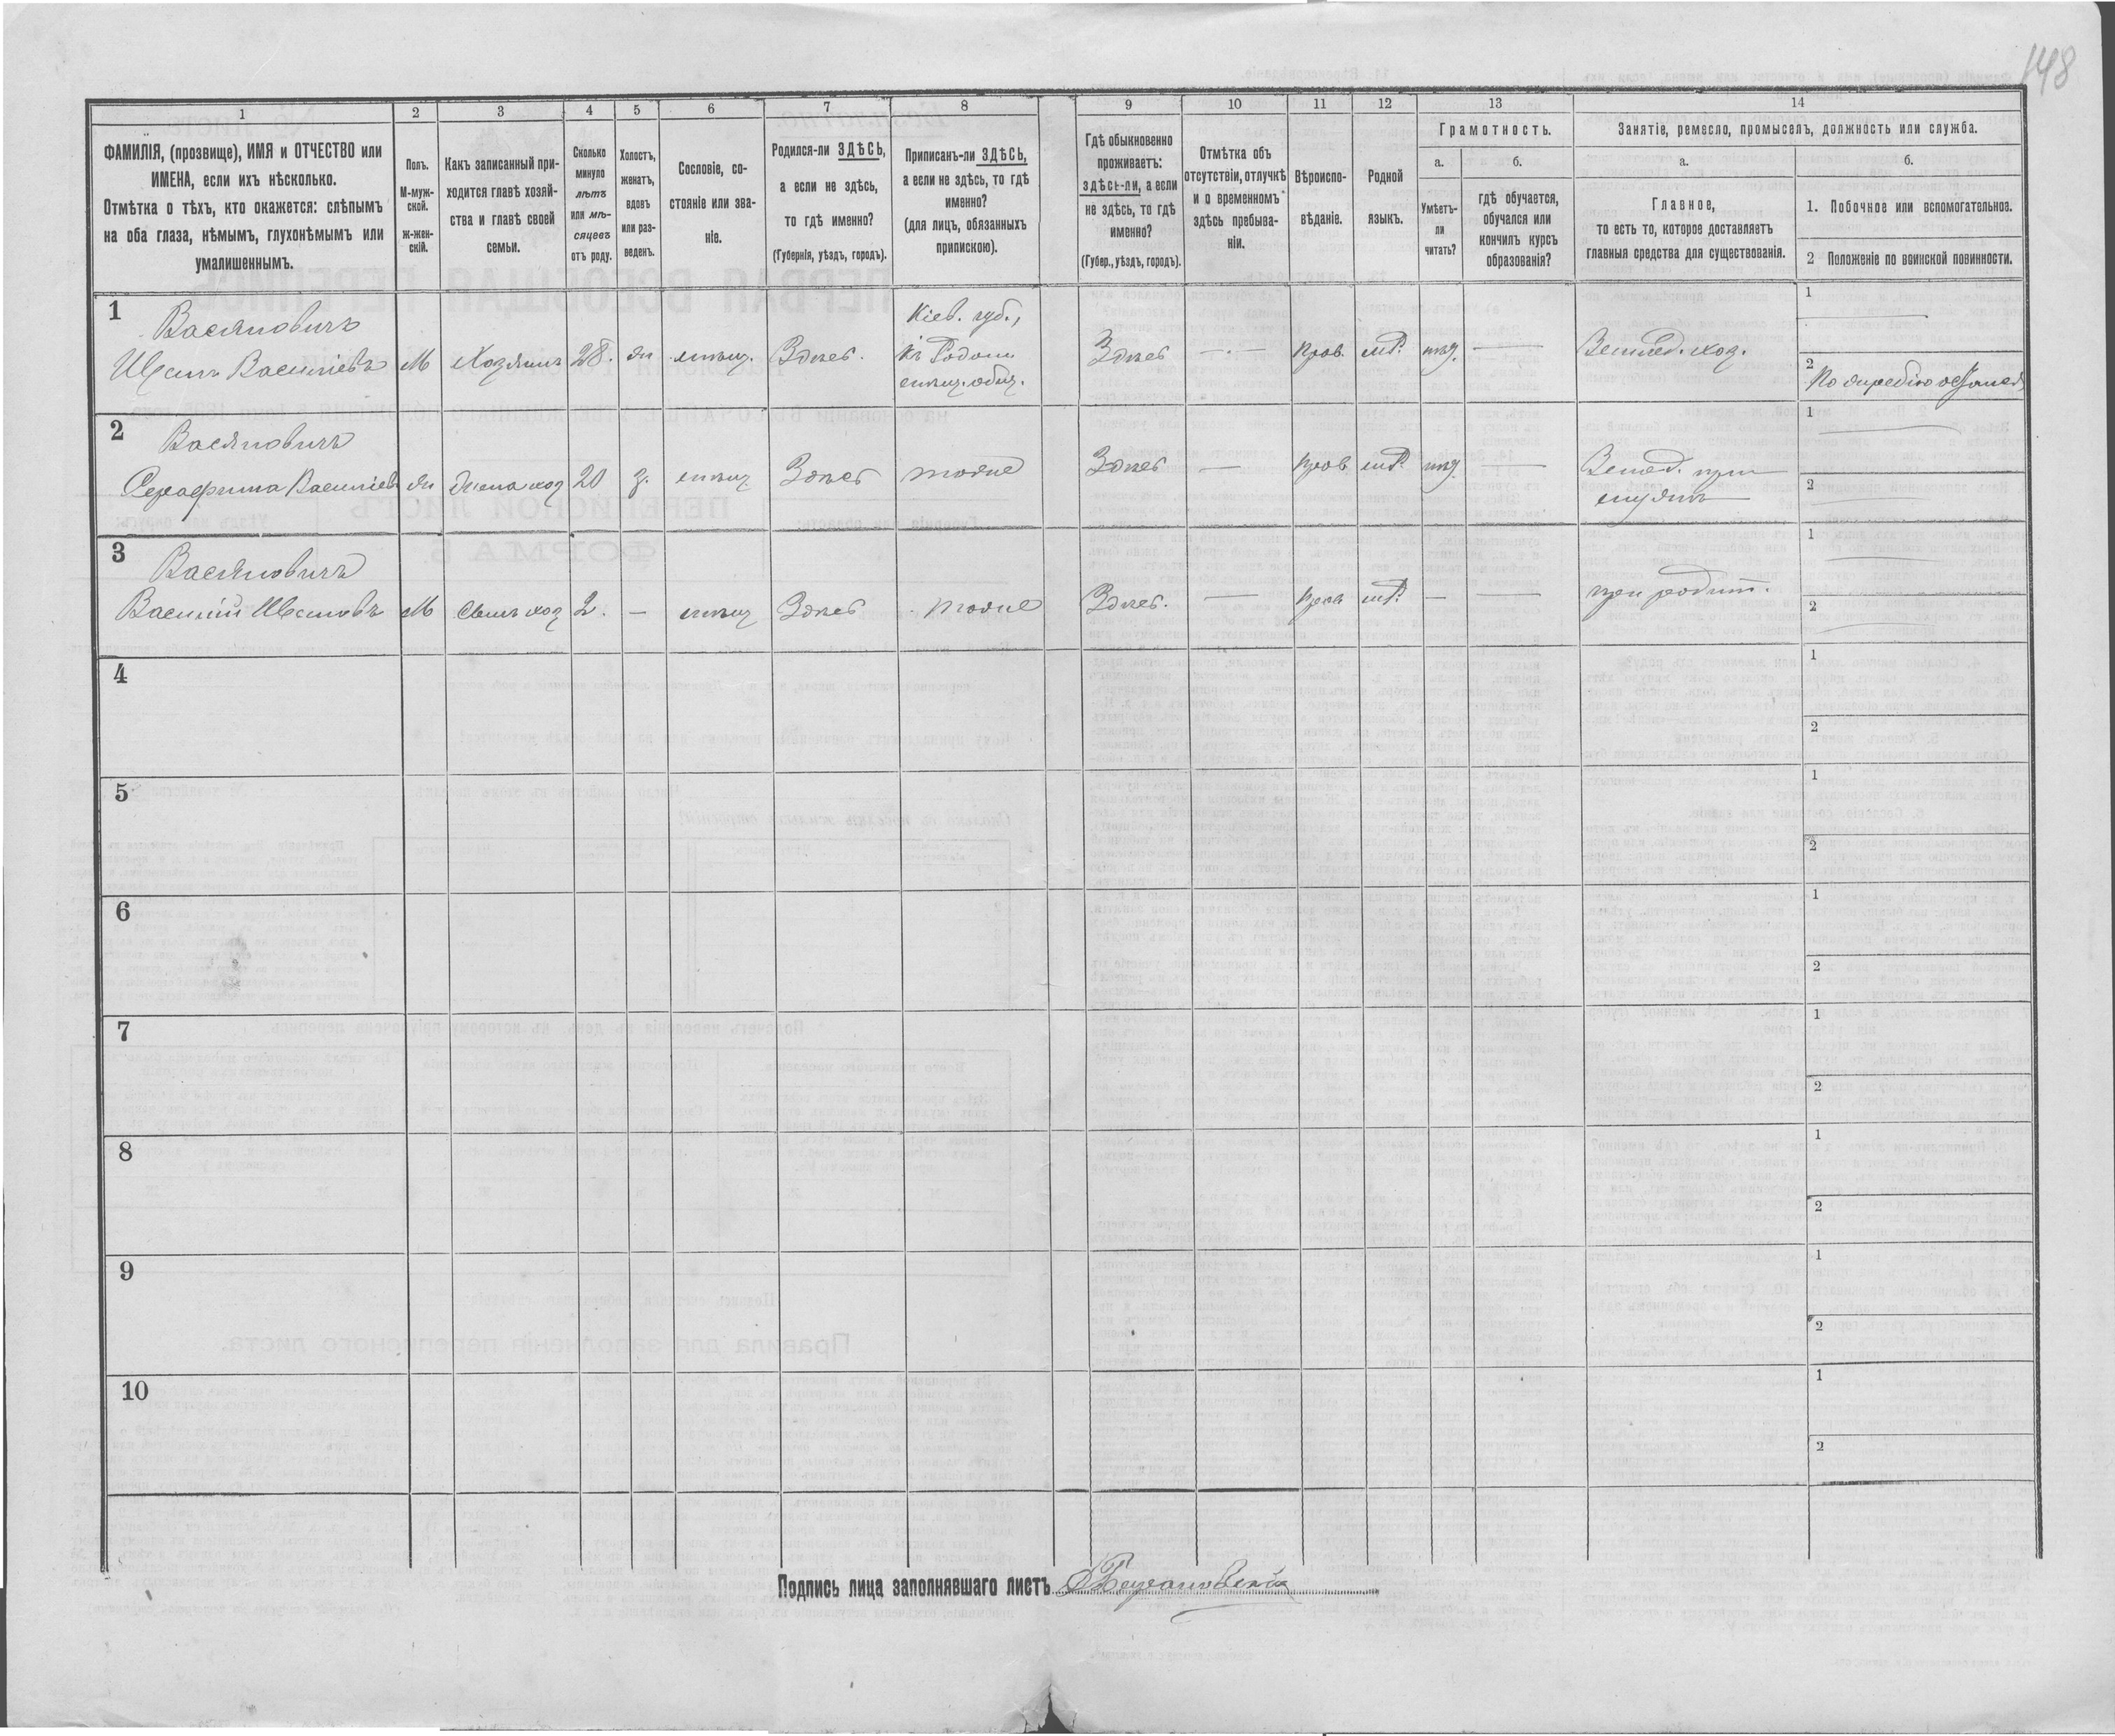 148
1
2
3
4
5
6
7
8
9
10
11
12
13
14
ФАМИЛІЯ, (прозвище), ИМЯ и ОТЧЕСТВО или
ИМЕНА, если ихъ нѣсколько.
Отмѣтка о тѣхъ, кто окажется: слѣпымъ
на оба глаза, нѣмымъ, глухонѣмымъ или
умалишеннымъ.
Полъ.
М-муж-
ской.
ж-жен-
скій.
Какъ записанный при-
ходится главѣ хозяй-
ства и главѣ своей
семьи.
Сколько
минуло
лѣтъ
или мѣ-
сяцевъ
отъ роду.
Холостъ,
женатъ,
вдовъ
или раз-
веденъ.
Сословіе, со-
стояніе или зва-
ніе.
Родился-ли ЗДѢСЬ,
а если не здѣсь,
то гдѣ именно?
(Губернія, уѣздъ, городъ).
Приписанъ-ли ЗДѢСЬ,
а если не здѣсь, то гдѣ
именно?
(для лицъ, обязанныхъ
припискою).
Гдѣ обыкновенно
проживаетъ:
здѣсь-ли, а если
не здѣсь, то гдѣ
именно?
(Губер., уѣздъ, городъ).
Отмѣтка объ
отсутствіи, отлучкѣ
и о временномъ
здѣсь пребыва-
ніи.
Вѣроиспо-
вѣданіе.
Родной
языкъ.
Грамотность.
а.
б.
Умѣетъ-
ли
читать?
гдѣ обучается,
обучался или
кончилъ курсъ
образованія?
Занятіе, ремесло, промыселъ, должность или служба.
а.
б.
Главное,
то есть то, которое доставляетъ
главныя средства для существованія.
1. Побочное или вспомогательное.
2 Положеніе по воинской повинности.
1
Васяновичъ
Иванъ Василіевъ
М
Хозяинъ
28.
жн
мѣщ.
Здѣсь.
Кіев. губ.,
мѣщ. общ.
Здѣсь
—
Прав.
мР.
нѣт.
—
Землед. хоз.
1
2
2
Васяновичъ
Серафима Василіев
ж
Жена хоз
20
з.
мѣщ
Здѣсь
тоже
Здѣсь
—
прав
мР.
нѣт.
—
Землед. при
мужѣ
1
2
3
Васяновичъ
Василій Ивановъ
М
Сынъ хоз
2.
—
мѣщ
Здѣсь
тоже
Здѣсь.
—
прав
мР.
—
—
при родит.
1
2
4
1
2
5
1
2
6
1
2
7
1
2
8
1
2
9
1
2
10
1
2
Подпись лица заполнявшаго листъ